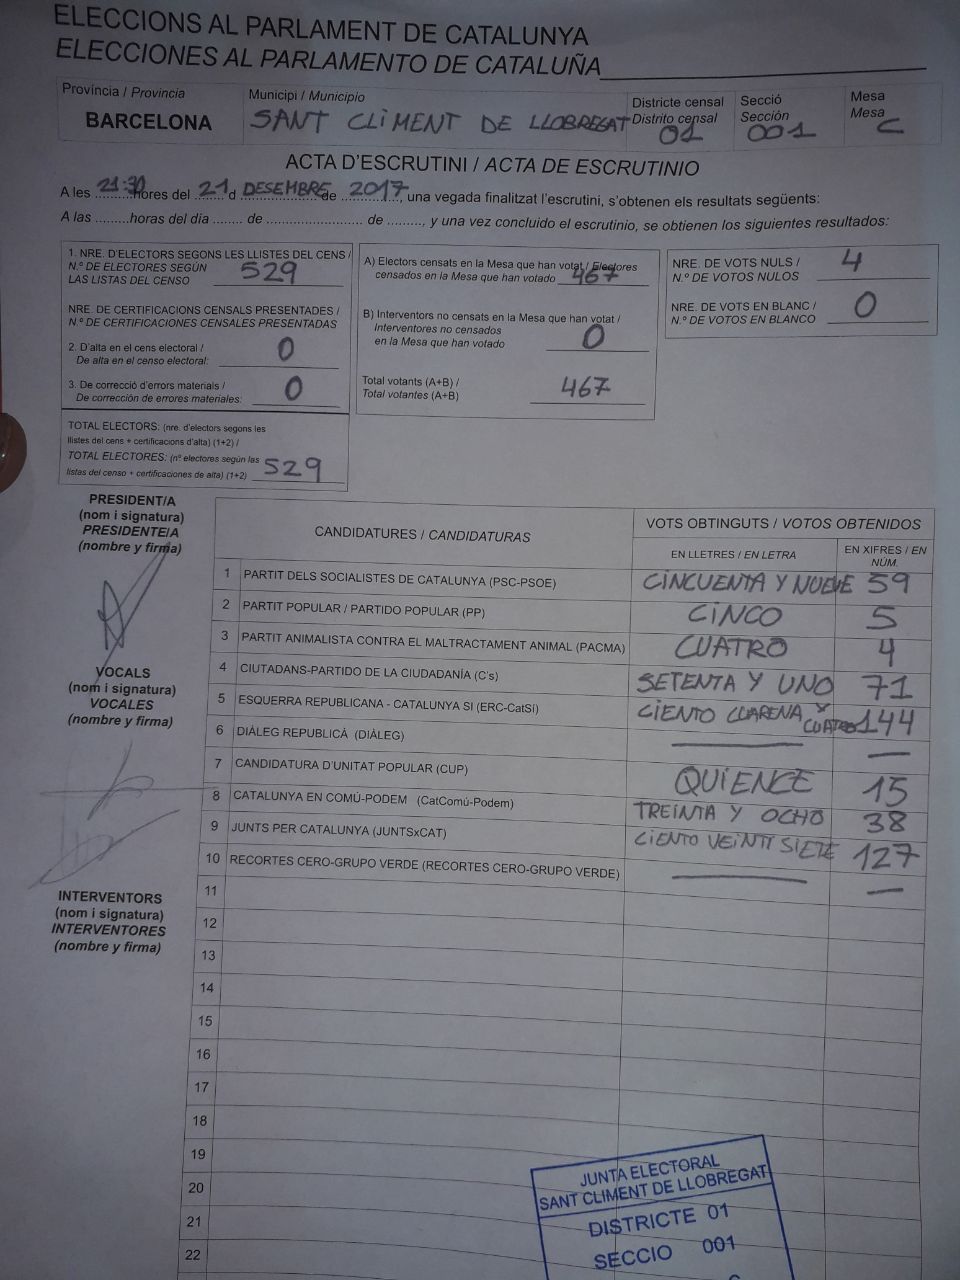 ELECCIONS AL PARLAMENT DE CATALUNYA
ELECCIONES AL PARLAMENTO DE CATALUÑA
Província / Provincia
BARCELONA
Municipi / Municipio
SANT CLIMENT DE LLOBREGAT
Districte censal
Distrito censal
01
Secció
Sección
001
Mesa
Mesa
C
ACTA D'ESCRUTINI / ACTA DE ESCRUTINIO
A les 21:30 hores del 21 d DESEMBRE de 2017, una vegada finalitzat l'escrutini, s'obtenen els resultats següents:
A las .........horas del día ....... de ....................... de ........., y una vez concluido el escrutinio, se obtienen los siguientes resultados:
1. NRE. D'ELECTORS SEGONS LES LLISTES DEL CENS /
N.º DE ELECTORES SEGÚN
LAS LISTAS DEL CENSO 529
NRE. DE CERTIFICACIONS CENSALS PRESENTADES /
N.º DE CERTIFICACIONES CENSALES PRESENTADAS
2. D'alta en el cens electoral /
De alta en el censo electoral: 0
3. De correcció d'errors materials /
De corrección de errores materiales: 0
TOTAL ELECTORS: (nre. d'electors segons les
llistes del cens + certificacions d'alta) (1+2) /
TOTAL ELECTORES: (nº electores según las
listas del censo + certificaciones de alta) (1+2) 529
A) Electors censats en la Mesa que han votat / Electores
censados en la Mesa que han votado 467
B) Interventors no censats en la Mesa que han votat /
Interventores no censados
en la Mesa que han votado 0
Total votants (A+B) /
Total votantes (A+B) 467
NRE. DE VOTS NULS /
N.º DE VOTOS NULOS 4
NRE. DE VOTS EN BLANC /
N.º DE VOTOS EN BLANCO 0
PRESIDENT/A
(nom i signatura)
PRESIDENTE/A
(nombre y firma)
VOCALS
(nom i signatura)
VOCALES
(nombre y firma)
INTERVENTORS
(nom i signatura)
INTERVENTORES
(nombre y firma)
CANDIDATURES / CANDIDATURAS
VOTS OBTINGUTS / VOTOS OBTENIDOS
EN LLETRES / EN LETRA
EN XIFRES / EN
NÚM.
1 PARTIT DELS SOCIALISTES DE CATALUNYA (PSC-PSOE) CINCUENTA Y NUEVE 59
2 PARTIT POPULAR / PARTIDO POPULAR (PP) CINCO 5
3 PARTIT ANIMALISTA CONTRA EL MALTRACTAMENT ANIMAL (PACMA) CUATRO 4
4 CIUTADANS-PARTIDO DE LA CIUDADANÍA (C's) SETENTA Y UNO 71
5 ESQUERRA REPUBLICANA - CATALUNYA SI (ERC-CatSí) CIENTO CUARENA Y CUATRO 144
6 DIÀLEG REPUBLICÀ (DIÀLEG) — —
7 CANDIDATURA D'UNITAT POPULAR (CUP) QUIENCE 15
8 CATALUNYA EN COMÚ-PODEM (CatComú-Podem) TREINTA Y OCHO 38
9 JUNTS PER CATALUNYA (JUNTSxCAT) CIENTO VEINTI SIETE 127
10 RECORTES CERO-GRUPO VERDE (RECORTES CERO-GRUPO VERDE) — —
11
12
13
14
15
16
17
18
19
20
21
22
JUNTA ELECTORAL
SANT CLIMENT DE LLOBREGAT
DISTRICTE 01
SECCIO 001